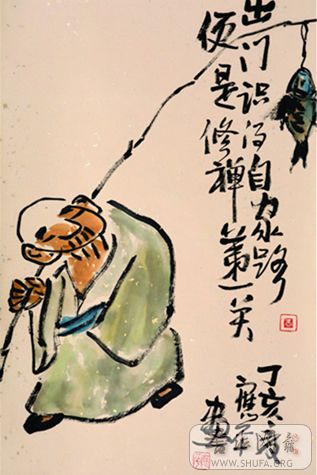 出门识得自家路
便是修禪第一关
丁亥
WWW.SHUFA.ORG